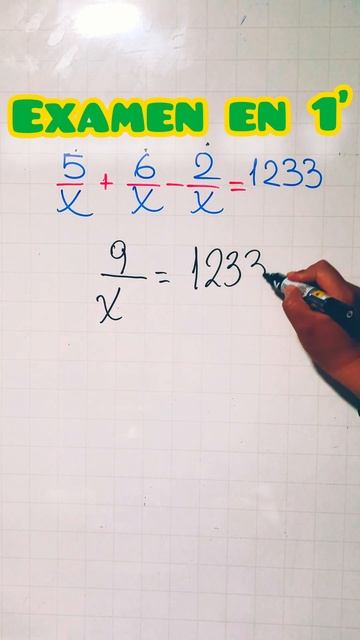 EXAMEN EN 1'
5/x + 6/x - 2/x = 1233
9/x = 1233